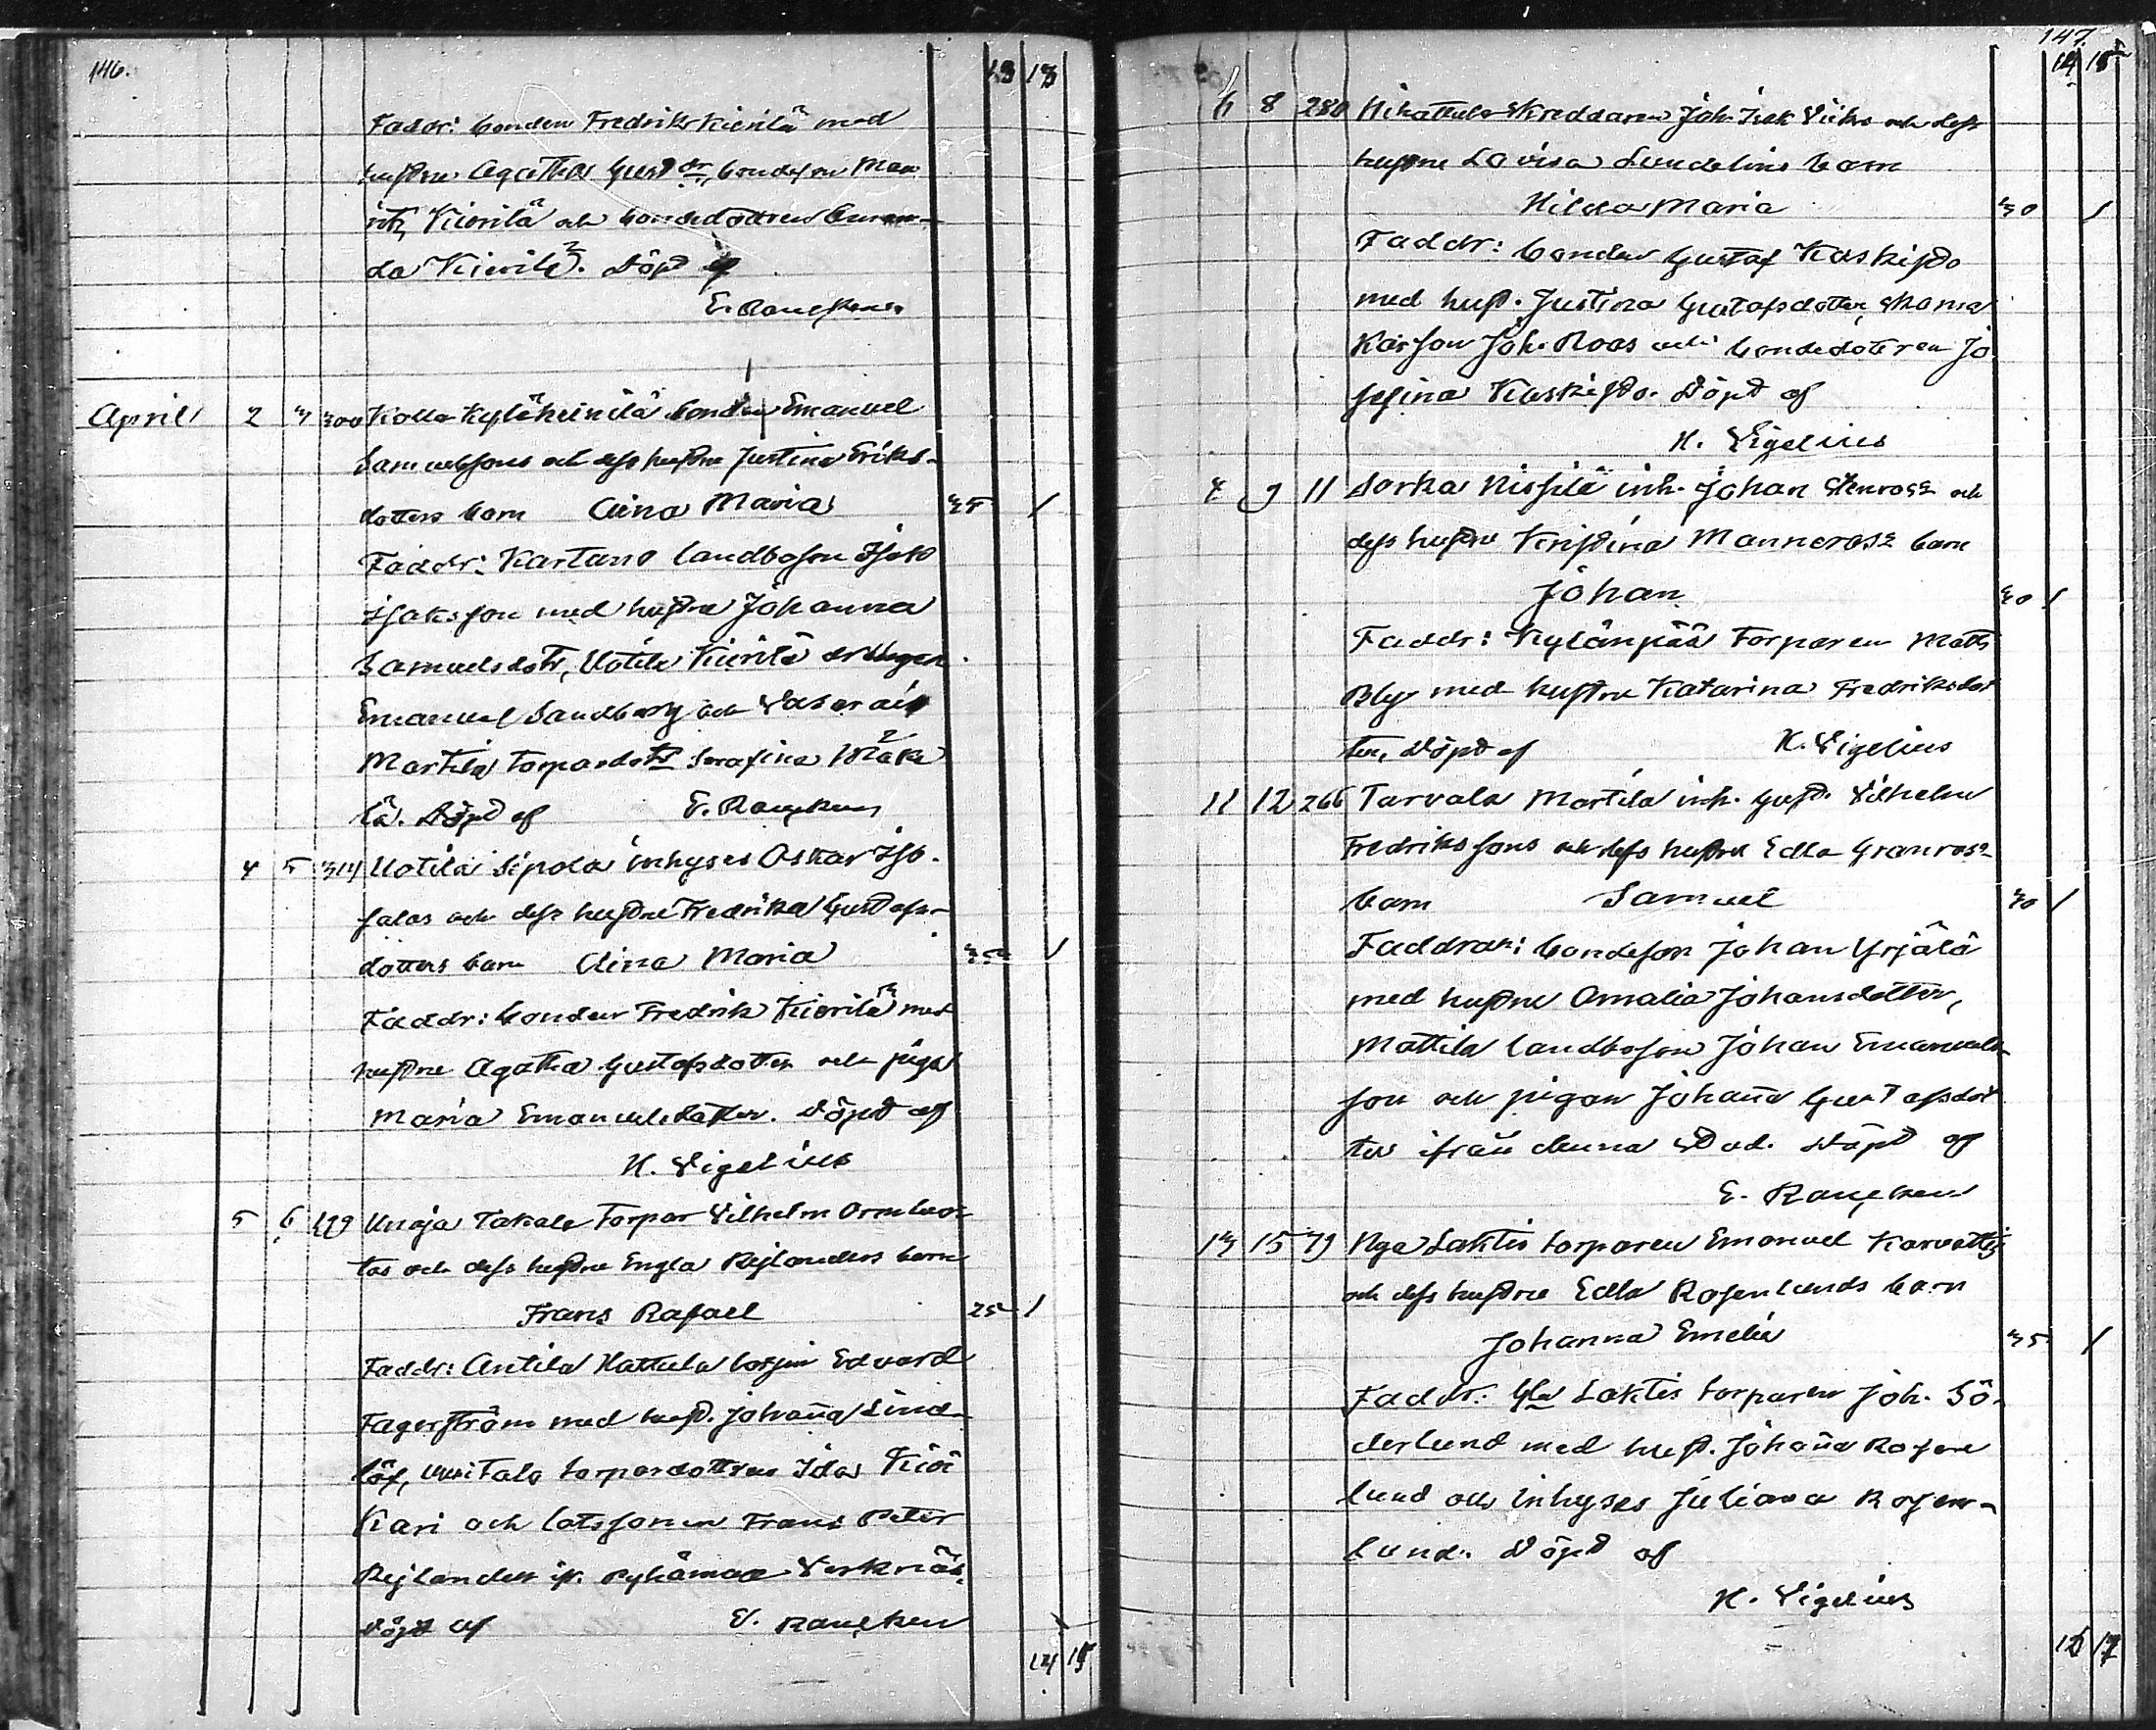 146.
13 13
Faddr: bonden Fredrik Kierilä med
hustru Agatha Gustdr, bondeson Mau
ritz Kierilä och bondedottren Aman-
da Kierilä. Döpt af
E. Rancken
April 2 3 300 Kolla Kyläheinilä bonden Emanuel
Samuelssons och dess hustru Justina Eriks-
dotters barn Aina Maria 35 /
Faddr: Kartano landboson Isak
Isaksson med hustru Johanna
Samuelsdotr, Uotila Kierilä drängen
Emanuel Sandberg och
Martila torpardotr Serafina Mäke
lä. Döpt af E. Rancken
4 5 314 Uotila Sipola inhyses Oskar Iso-
salos och dess hustru Fredrika Gustafs-
dotters barn Aina Maria 35 /
Faddr: bonden Fredrik Kierilä med
hustru Agatha Gustafsdotter och pigan
Maria Emanuelsdotter. Döpt af
K. Vigelius
5 6 Unaja Takala torpar Vilhelm Ormluo-
tos och dess hustru Engla Rejlanders barn
Frans Rafael 25 /
Faddr: Antila Hattula Edvard
Fagerström med hust. Johanna Lind-
löf, Uusitalo torpardottren Ida Kivi
Kari och lotssonen Frans Peter
Rejlander ifr. Pyhämaa
Döpt af E. Rancken
14 15
147.
14 15
6 8 280 Hihattula Skreddaren Joh. Isak Viks och dess
hustru Lovisa Lundelins barn
Hilda Maria 30 /
Faddr: bonden Gustaf Kaskisto
med hust. Justina Gustafsdotter, Skoma
karson Joh. Roos och bondedottren Jo
sefina Kaskisto. Döpt af
K. Vigelius
4 9 11 Sorka Nissilä inh. Johan Stenroos och
dess hustru Kristina Manneroos barn
Johan 30 /
Faddr: Kylänpää torparen Matts
Bly med hustru Katarina Fredriksdot
ter, Döpt af K. Vigelius
11 12 266 Tarvola Martila inh. Gust. Vilhelm
Fredrikssons och dess hustru Edla Granroos
barn Samuel 30 /
Faddrar: bondeson Johan Yrjälä
med hustru Amalia Johansdotter,
Mattila landboson Johan Emanuels
son och pigan Johanna Gustafsdot
ter ifrån denna stad. Döpt af
E. Rancken
13 15 79 Nya Laktis torparen Emanuel Karvattis
och dess hustru Edla Rosenlunds barn
Johanna Emelia 35 /
Faddr: Gla Laktis torparen Joh. Sö-
derlund med hust. Johanna Rosen
lund och inhyses Juliana Rosen-
lund. Döpt af
K. Vigelius
16 17